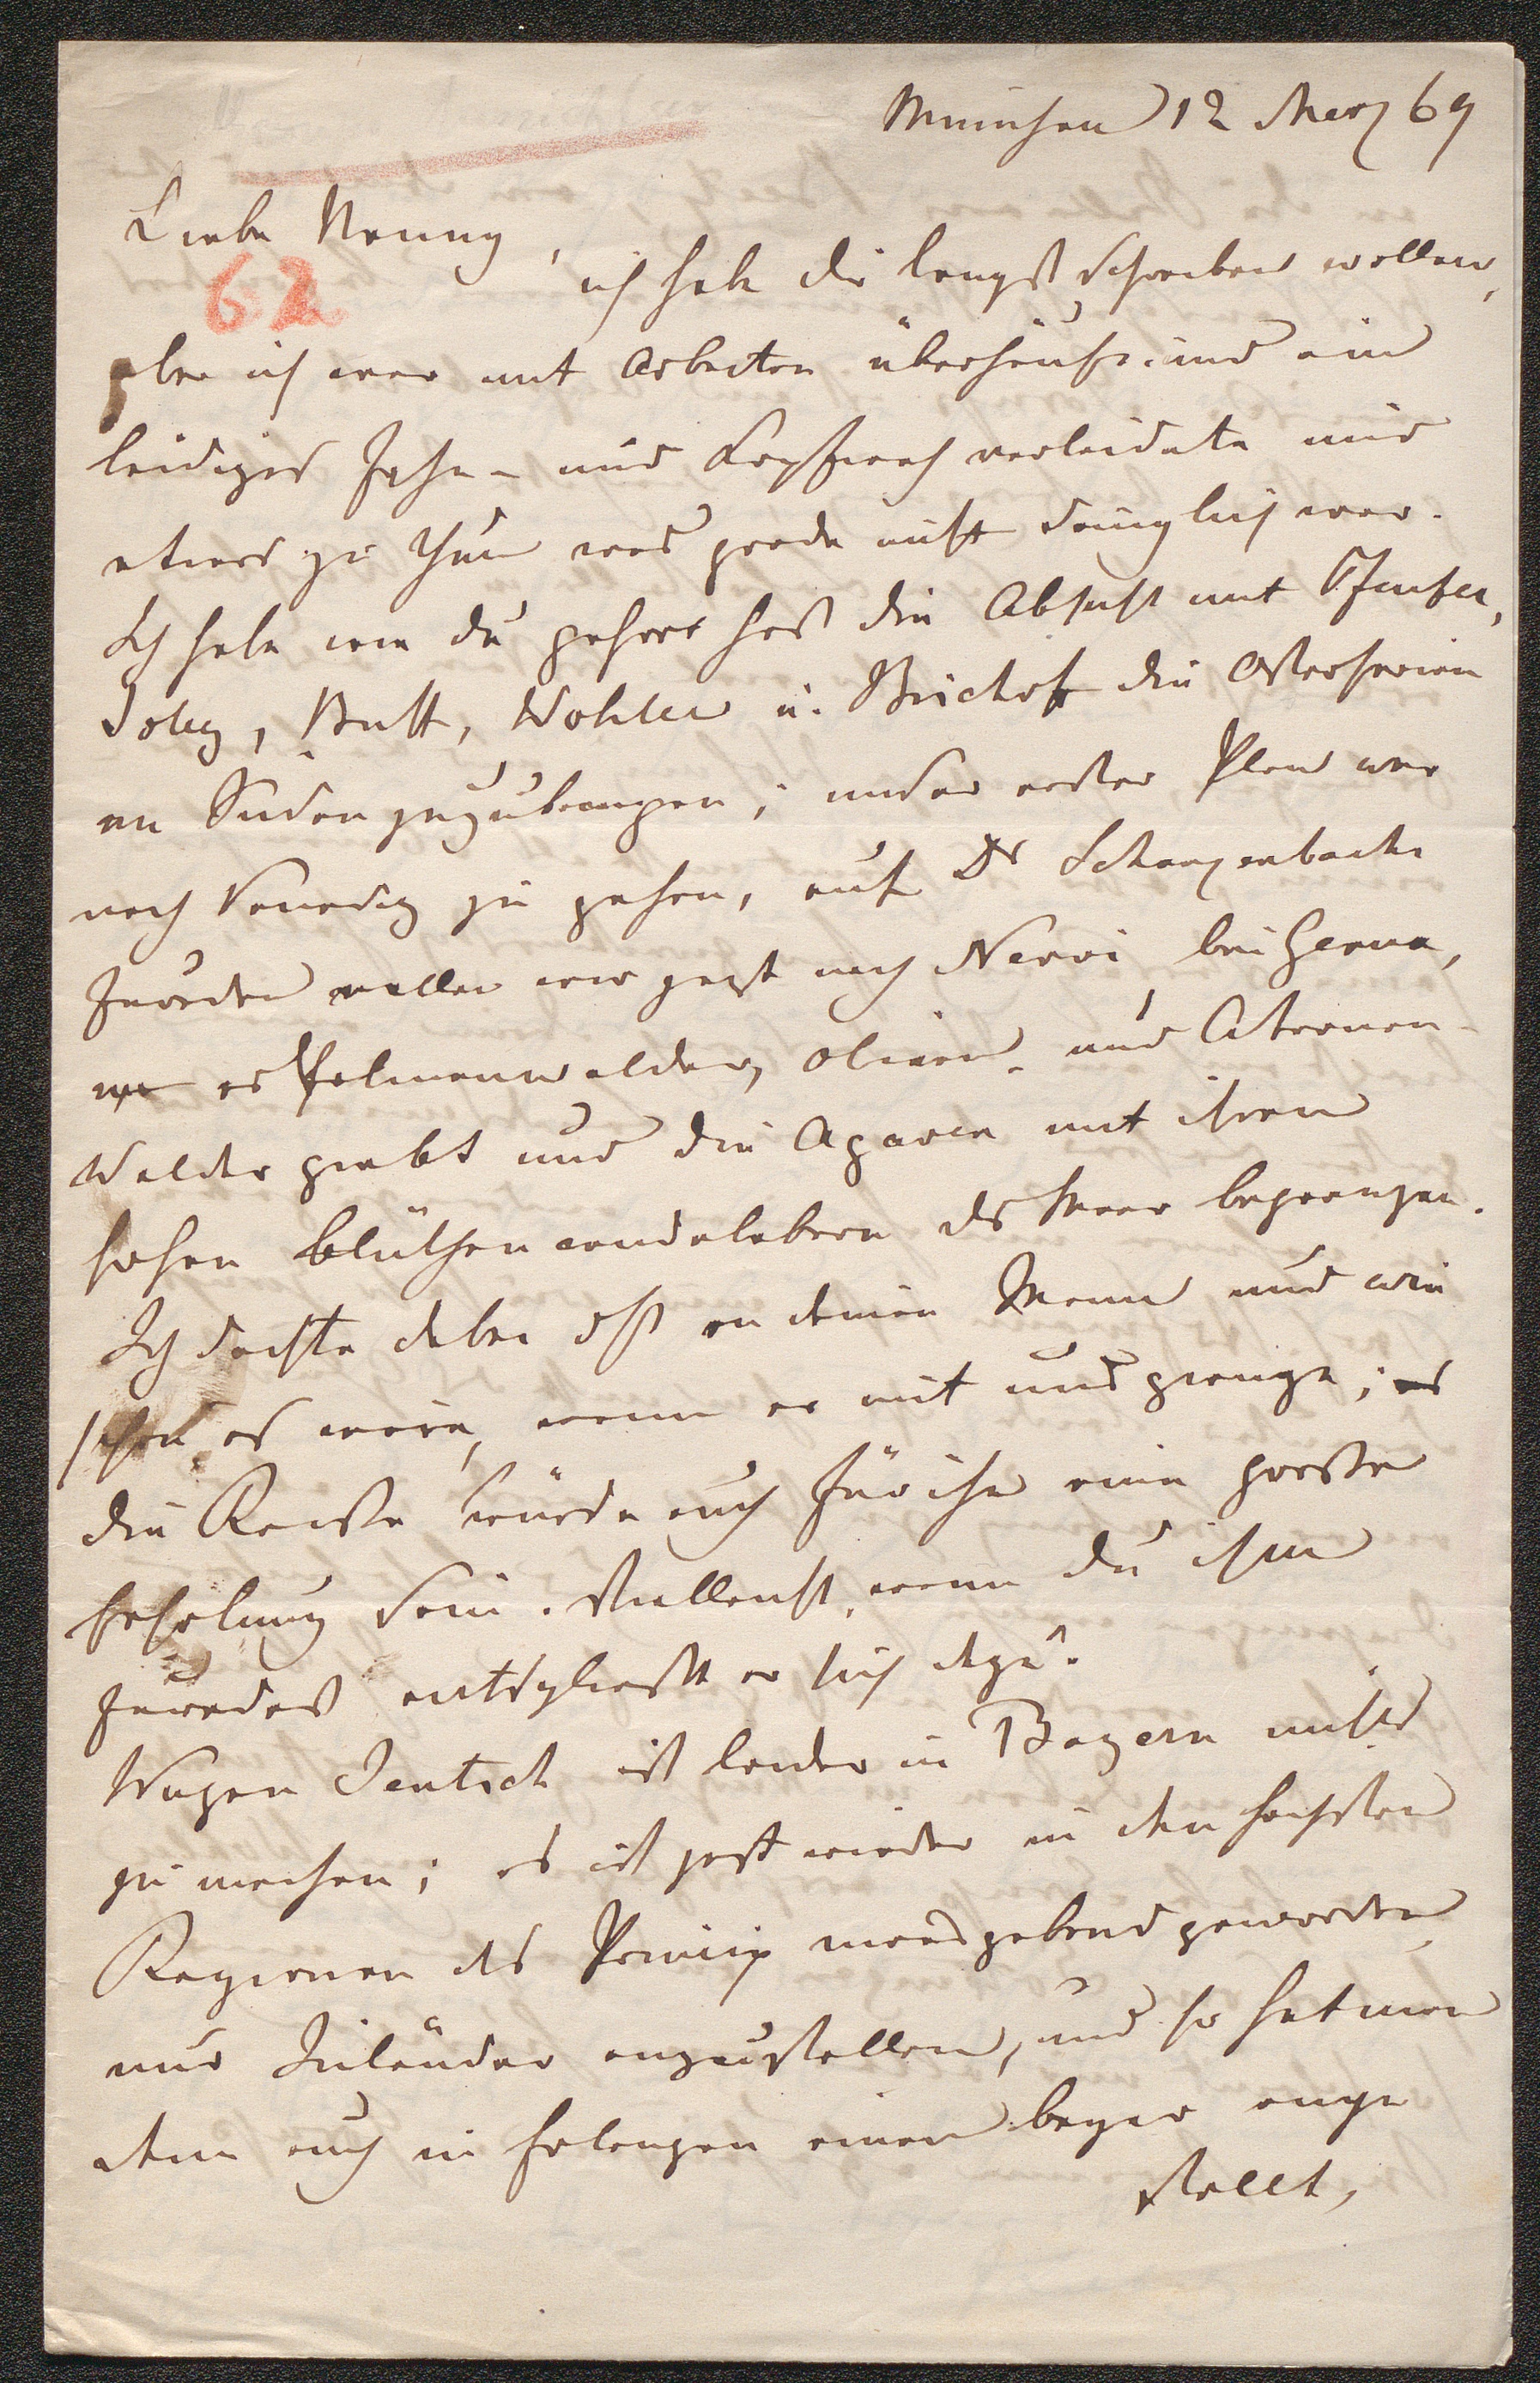 München 12 Merz 69
Liebe Nanny,
62
ich habe dir längst schreiben wollen,
aber ich war mit Arbeiten überhäuft und ein
leidiges Zahn- und Kopfweh verleidete mir
etwas zu thun was grade nicht dringlich war.
Ich habe wie du gehört hast die Absicht mit Pfeufer,
Jolly, Buff, Wohler u. Bischoff die Osterferien
im Süden zuzubringen; unser erster Plan war
nach Venedig zu gehen, auf Dr Schanzenbachs
Zureden wollen wir jetzt nach Nervi bei Genua,
wo es Palmenwälder, Oliven- und Citronen-
Wälder giebt und die Agaven mit ihren
hohen Blüthencandelabern das Meer begrenzen.
Ich dachte dabei oft an deinen Mann und wie
schön es wäre, wenn er mit uns gienge;
die Reise würde auch für ihn eine große
Erholung sein. Vielleicht, wenn du ihm
zuredest entschließt er sich dazu.
Wegen Deutsch ist leider in Bayern nichts
zu machen; es ist jetzt wieder in den höchsten
Regionen das Princip maasgebend geworden
nur Inländer anzustellen, und so hat man
denn auch in Erlangen einen Bayer ange
stellt,